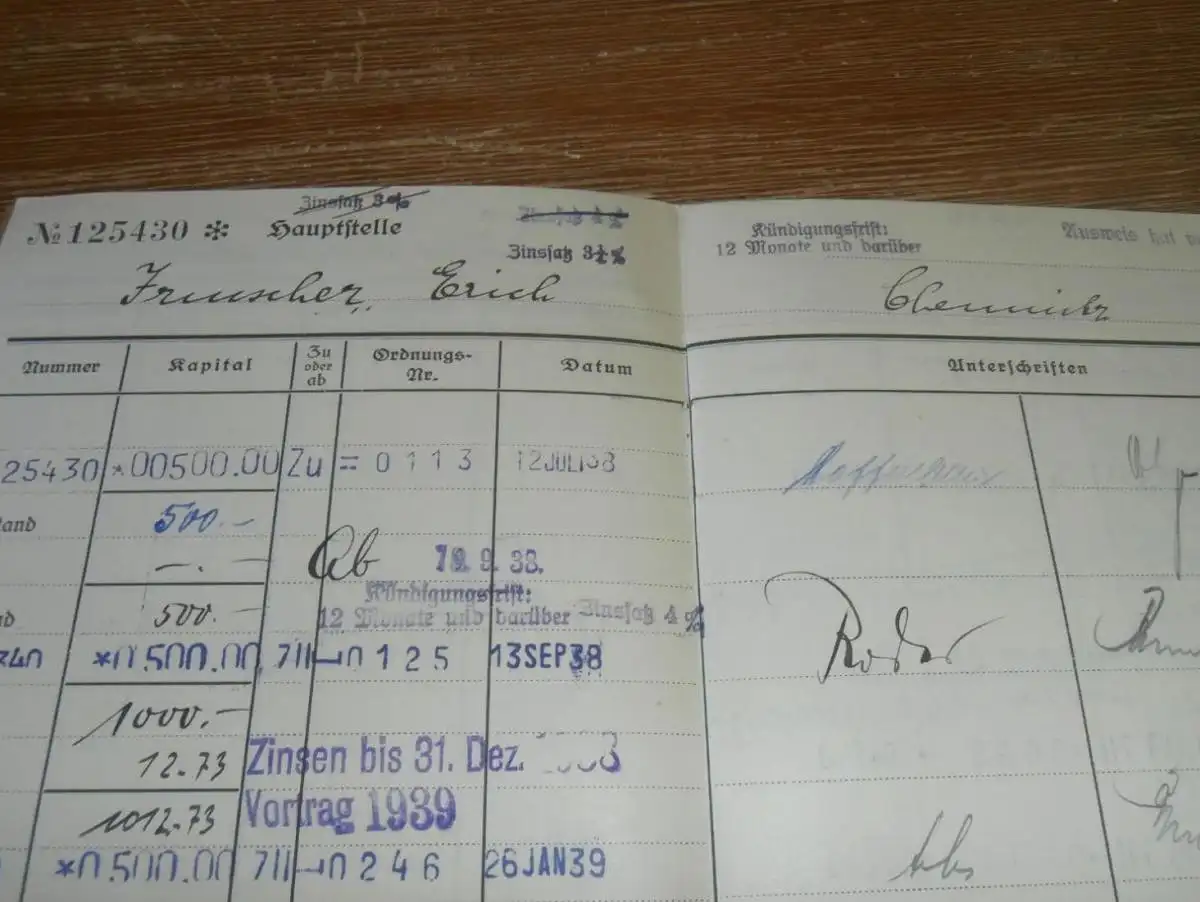 Zinssatz 3%
№ 125430 * Hauptstelle
Zinssatz 3½%
Kündigungsfrist:
12 Monate und darüber
Ausweis hat
Erich
Chemnitz
Nummer Kapital Zu oder ab Ordnungs-Nr. Datum Unterschriften
25430 *00500.00 Zu = 0113 12JULI38
tand 500.-
-.- Ab 19.9.38.
Kündigungsfrist:
12 Monate und darüber Zinssatz 4%
500.
*0.500.00 0125 13SEP38
1000.-
12.73 Zinsen bis 31. Dez.
1012.73 Vortrag 1939
*0.500.00 0246 26JAN39